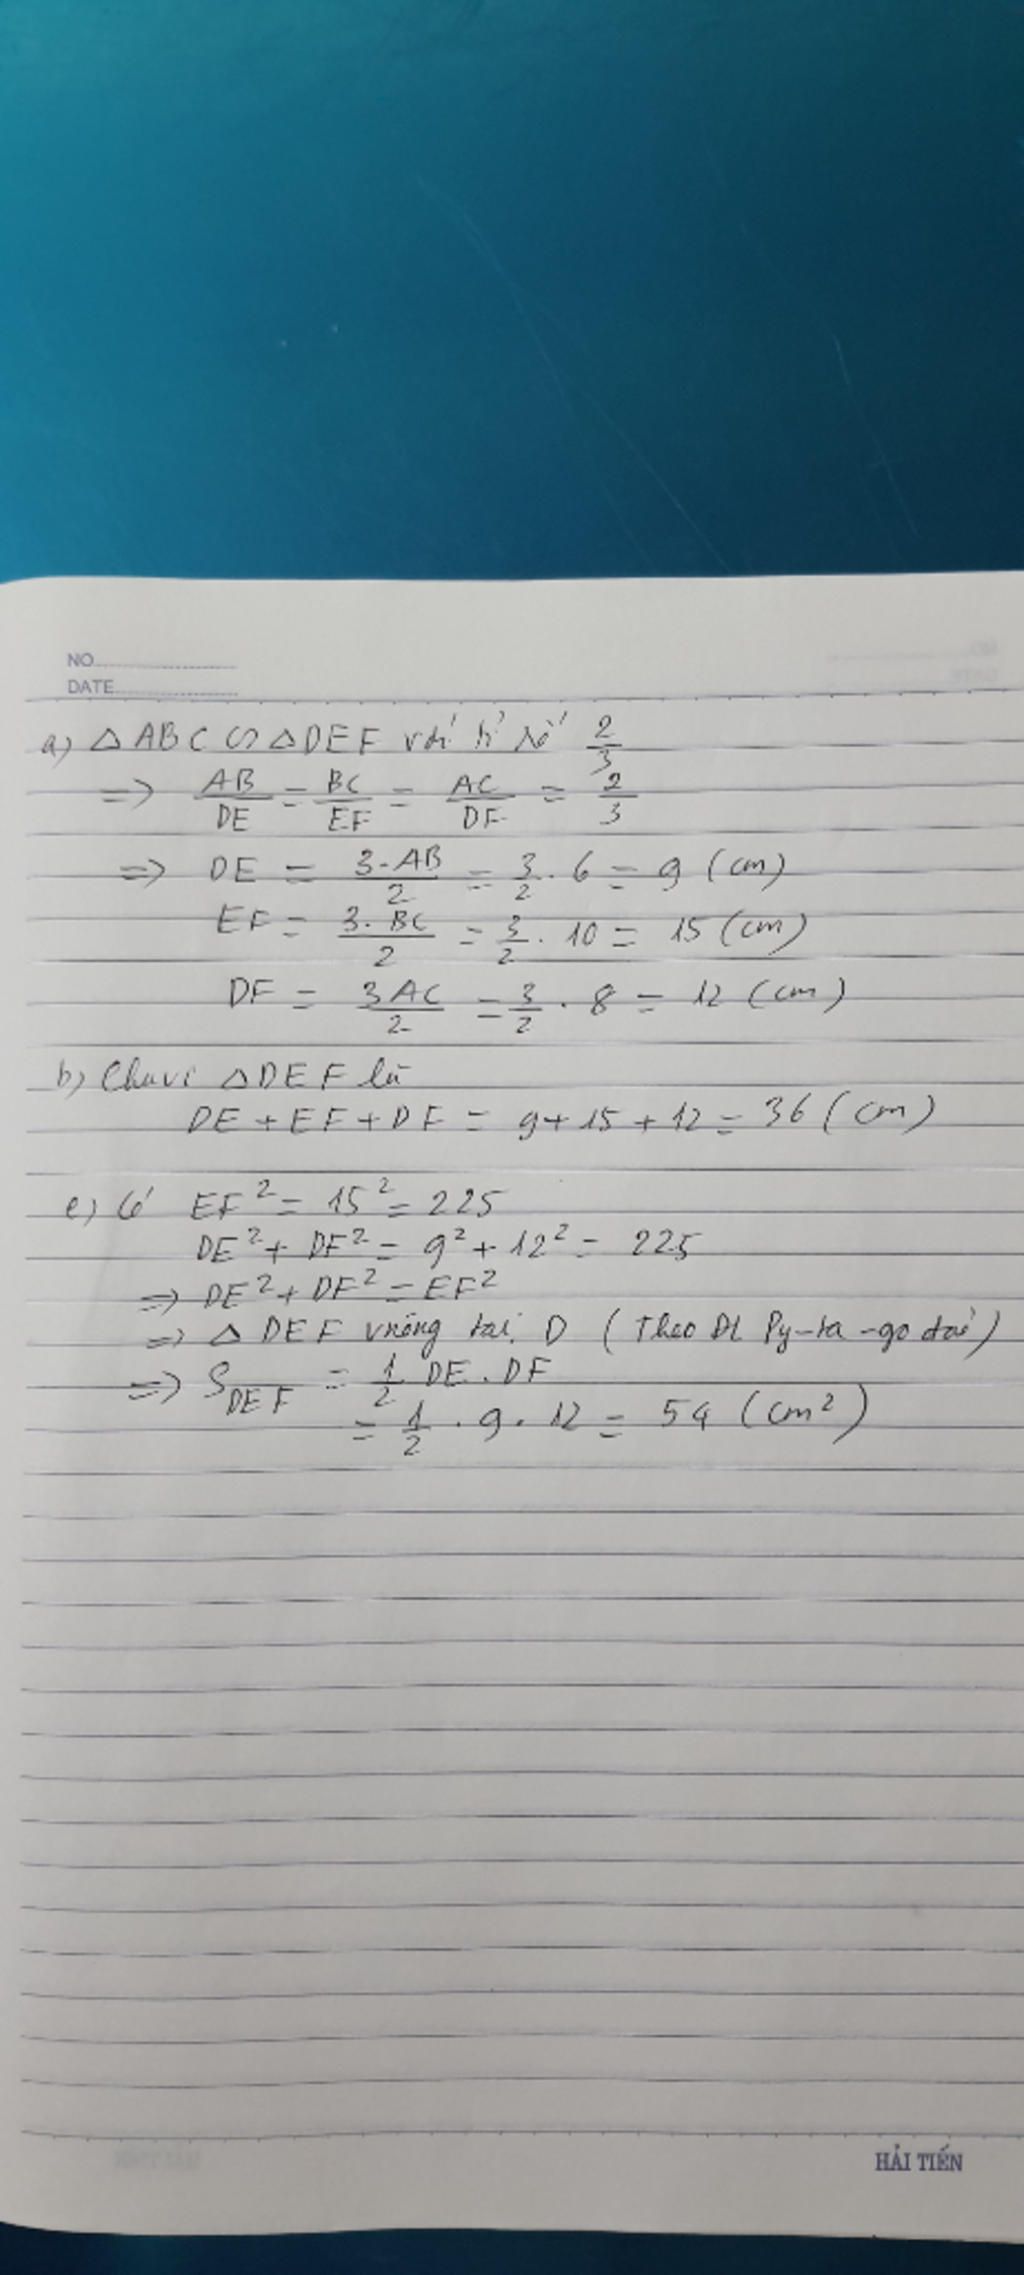 NO
DATE
a) △ABC ∽ △DEF với tỉ số 2/3
=> AB/DE = BC/EF = AC/DF = 2/3
=> DE = 3.AB/2 = 3/2 . 6 = 9 (cm)
EF = 3.BC/2 = 3/2 . 10 = 15 (cm)
DF = 3AC/2 = 3/2 . 8 = 12 (cm)
b) Chu vi △DEF là
DE + EF + DF = 9 + 15 + 12 = 36 (cm)
c) Có EF² = 15² = 225
DE² + DF² = 9² + 12² = 225
=> DE² + DF² = EF²
=> △ DEF vuông tại D (Theo ĐL Py-ta-go đảo)
=> S_DEF = 1/2 DE . DF
= 1/2 . 9 . 12 = 54 (cm²)
HẢI TIẾN